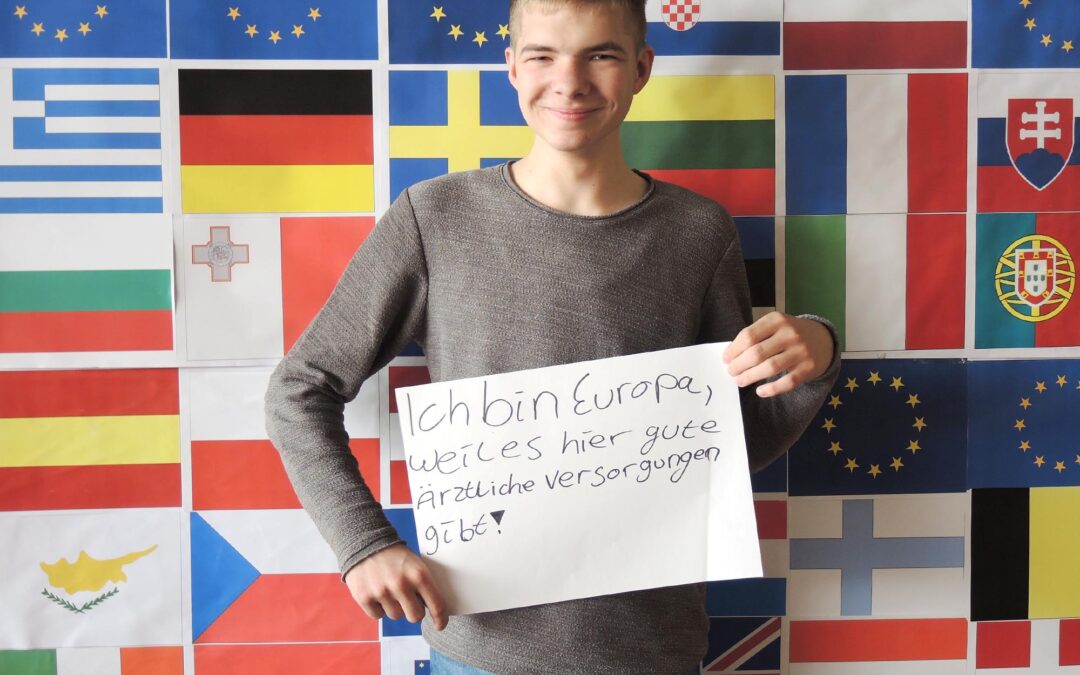 Ich bin Europa,
weil es hier gute
ärztliche Versorgungen
gibt!